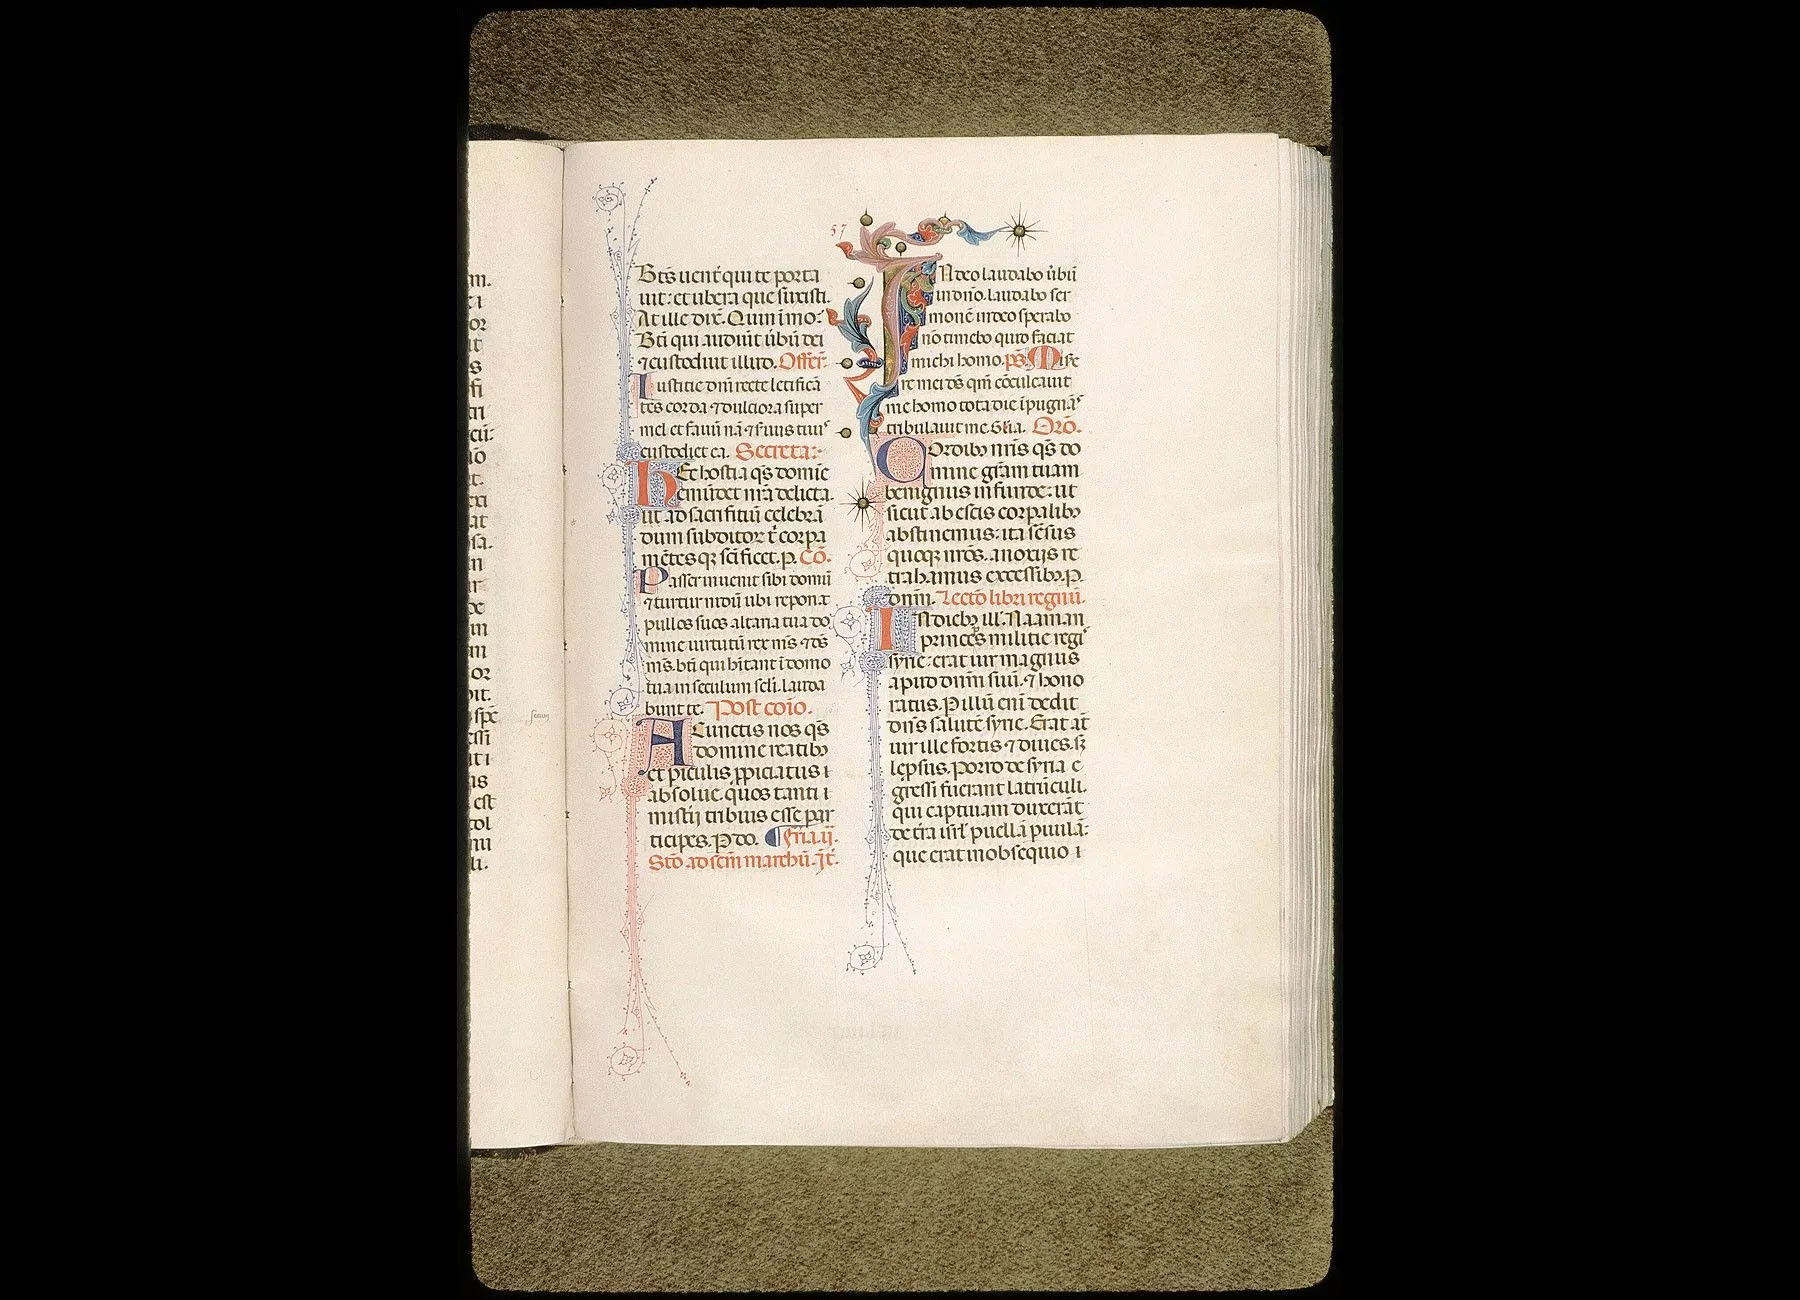 57
Bt̄s uent̄ qui te porta
uit: et ubera que suxisti.
At ille dix̄. Quin īmo:
Bt̄i qui audiūt ūbū dei
⁊ custodiūt illud. Offer̄.
Iustitie dn̄i recte letificā
tēs corda ⁊ dulciora super
mel et fauū nā ⁊ seruus tuus
custodiet ea. Secreta:
Hec hostia q̄s domīe
emūdet nr̄a delicta.
ut ad sacrifitiū celebrā
dum subditoꝝ t̄ corpa
mētesqꝫ sc̄ificet. p. Cō.
Passer inuenit sibi domū
⁊ turtur nidū ubi reponat
pullos suos altaria tua do
mine uirtutū rex ms̄ ⁊ ds̄
ms̄. bt̄i qui hītant ī domo
tua in seculum scl̄i. lauda
bunt te. Post coīo.
A Cunctis nos q̄s
domine reatibꝫ
et piculis ppiciatus
absolue. quos tanti
mistīj tribuis esse par
ticipes. P do. Feria. ij.
Stō ad scm̄ marchū. Jt̄.
IN deo laudabo ūbū
in dn̄o. laudabo ser
monē in deo sperabo
nō timebo quid faciat
michi homo. ps̄ Mise
re mei ds̄ qm̄ cōculcauit
me homo tota die īpugnās
tribulauit me. Gl̄ia. Orō.
Cordibꝫ nr̄is q̄s do
mine gr̄am tuam
benignus infunde: ut
sicut ab escis corpalibꝫ
abstinemus: ita sēsus
quoqꝫ nr̄os. a noxijs re
trahamus excessibꝫ. P.
dn̄m. Lectō libri regum.
IN diebꝫ ill̄. Naaman
princeps militie regis
syrie: erat uir magnus
apud dn̄m suū. ⁊ hono
ratus. P illū eni dedit
dn̄s salutē syrie. Erat āt
uir ille fortis ⁊ diues. sꝫ
lepsus. Porro de syria e
gressi fuerant latrūculi.
qui captiuam duxerāt
de tr̄a isrl̄ puellā puulā:
que erat in obsequio